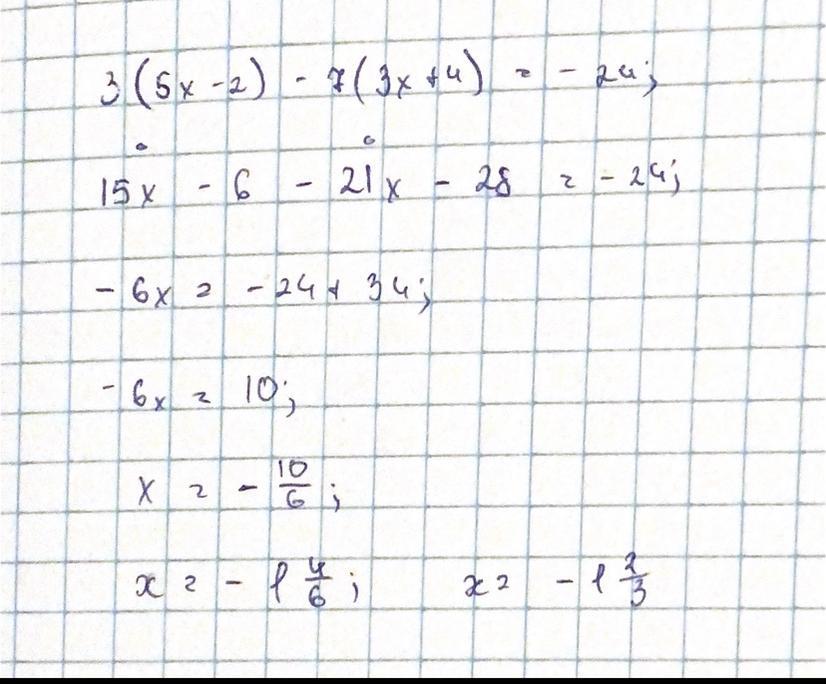 3(5x - 2) - 7(3x + 4) = - 24;
15x - 6 - 21x - 28 = - 24;
- 6x = - 24 + 34;
- 6x = 10;
x = - 10/6;
x = - 1 4/6; x = - 1 2/3